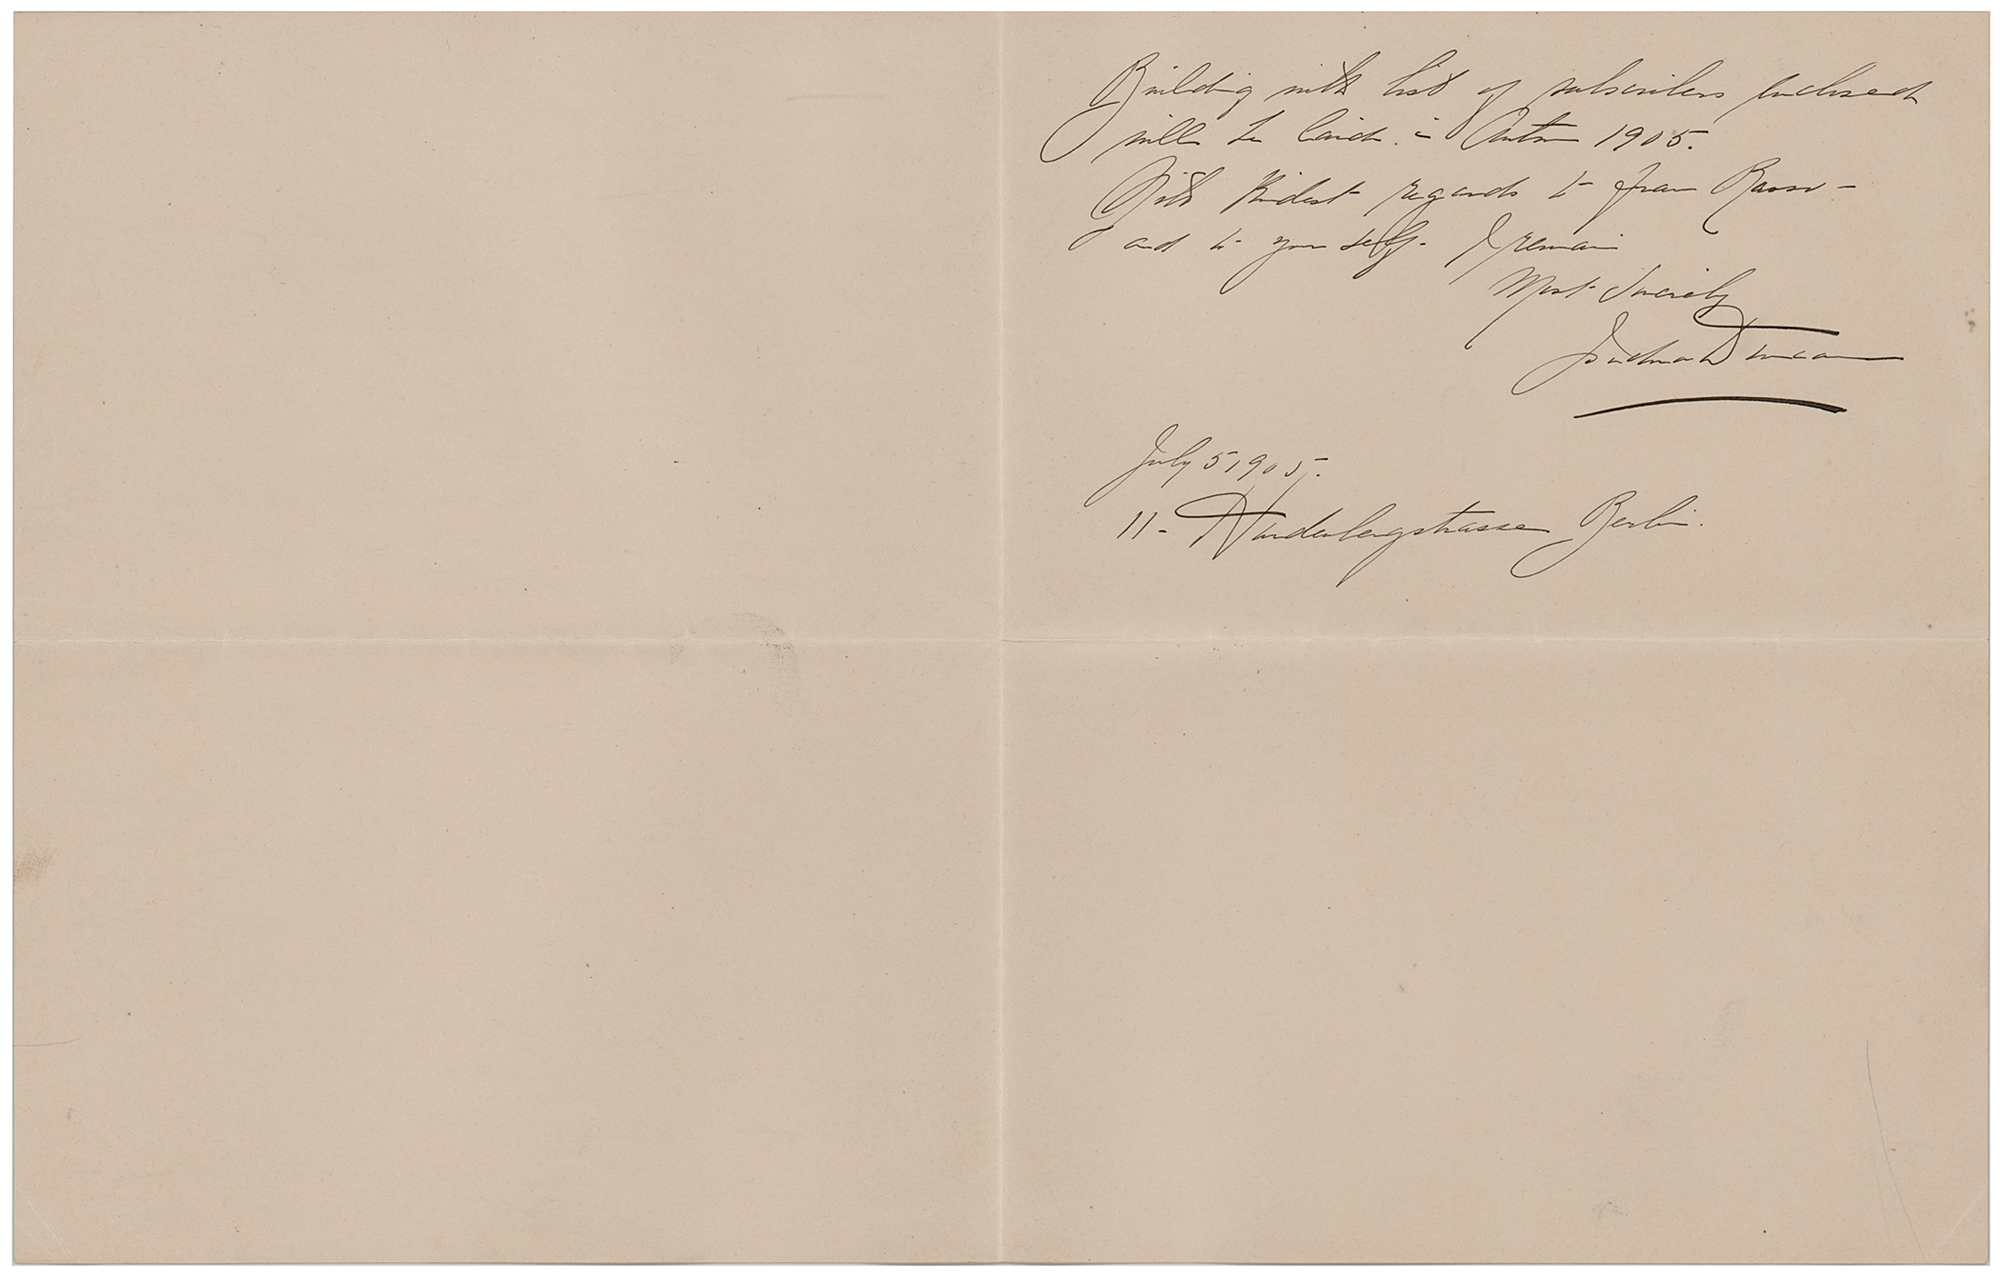 Building with list of subscribers enclosed
will be laid. in Autumn 1905.
With kindest regards to frau
and to your self. I remain
Most Sincerely
Isadora Duncan
July 5 1905.
11 - Hardenbergstrasse Berlin.